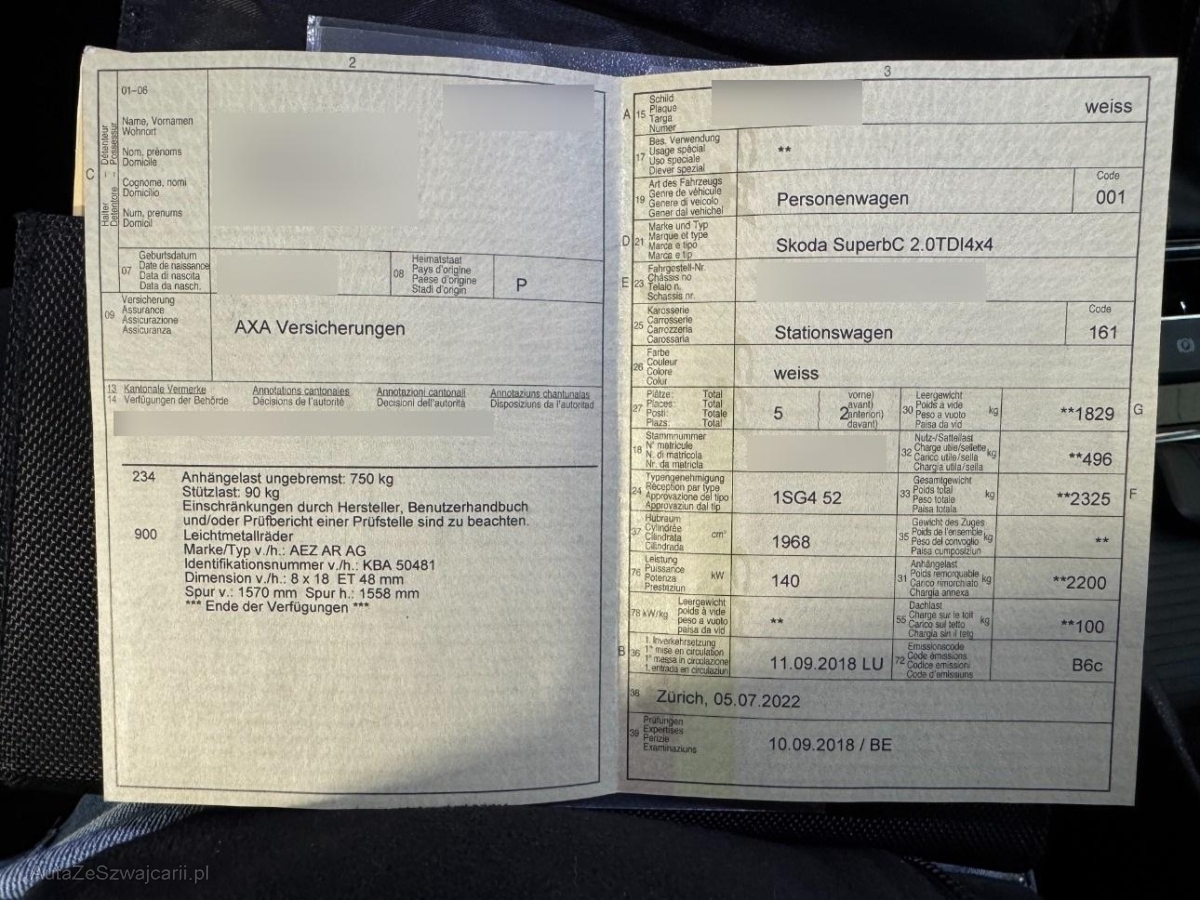 2
01-06
Name, Vornamen
Wohnort
Nom, prénoms
Domicile
Cognome, nomi
Domicilio
Num, prenums
Domicil
C
Halter
Détenteur
Detentore
Possessur
07
Geburtsdatum
Date de naissance
Data di nascita
Data da nasch.
08
Heimatstaat
Pays d'origine
Paese d'origine
Stadi d'origin
P
09
Versicherung
Assurance
Assicurazione
Assicuranza
AXA Versicherungen
13
14
Kantonale Vermerke
Verfügungen der Behörde
Annotations cantonales
Décisions de l'autorité
Annotazioni cantonali
Decisioni dell'autorità
Annotaziuns chantunalas
Disposiziuns da l'autoritad
234 Anhängelast ungebremst: 750 kg
Stützlast: 90 kg
Einschränkungen durch Hersteller, Benutzerhandbuch
und/oder Prüfbericht einer Prüfstelle sind zu beachten.
900 Leichtmetallräder
Marke/Typ v./h.: AEZ AR AG
Identifikationsnummer v./h.: KBA 50481
Dimension v./h.: 8 x 18 ET 48 mm
Spur v.: 1570 mm Spur h.: 1558 mm
*** Ende der Verfügungen ***
3
A 15
Schild
Plaque
Targa
Numer
weiss
17
Bes. Verwendung
Usage spécial
Uso speciale
Diever spezial
**
19
Art des Fahrzeugs
Genre de véhicule
Genere di veicolo
Gener dal vehichel
Personenwagen
Code
001
D 21
Marke und Typ
Marque et type
Marca e tipo
Marca e tip
Skoda SuperbC 2.0TDI4x4
E 23
Fahrgestell-Nr.
Châssis no
Telaio n.
Schassis nr.
25
Karosserie
Carrosserie
Carrozzeria
Carossaria
Stationswagen
Code
161
26
Farbe
Couleur
Colore
Colur
weiss
27
Plätze: Total
Places: Total
Posti: Totale
Plazs: Total
5
2
vorne)
avant)
anteriori)
davant)
30
Leergewicht
Poids à vide
Peso a vuoto
Paisa da vid
kg
**1829
G
18
Stammnummer
N° matricule
N. di matricola
Nr. da matricla
32
Nutz-/Sattellast
Charge utile/sellette
Carico utile/sella
Chargia utila/sella
kg
**496
24
Typengenehmigung
Réception par type
Approvazione del tipo
Approvaziun dal tip
1SG4 52
33
Gesamtgewicht
Poids total
Peso totale
Paisa totala
kg
**2325
F
37
Hubraum
Cylindrée
Cilindrata
Cilindrada
cm³
1968
35
Gewicht des Zuges
Poids de l'ensemble
Peso del convoglio
Paisa cumposiziun
kg
**
76
Leistung
Puissance
Potenza
Prestaziun
kW
140
31
Anhängelast
Poids remorquable
Carico rimorchiato
Chargia annexa
kg
**2200
78 kW/kg
Leergewicht
poids à vide
peso a vuoto
paisa da vid
**
55
Dachlast
Charge sur le toit
Carico sul tetto
Chargia sin il tetg
kg
**100
B 36
1. Inverkehrsetzung
1re mise en circulation
1a messa in circolazione
1. entrada en circulaziun
11.09.2018 LU
72
Emissionscode
Code émissions
Codice emissioni
Code d'emissiuns
B6c
38
Zürich, 05.07.2022
39
Prüfungen
Expertises
Perizie
Examinaziuns
10.09.2018 / BE
AutaZeSzwajcarii.pl